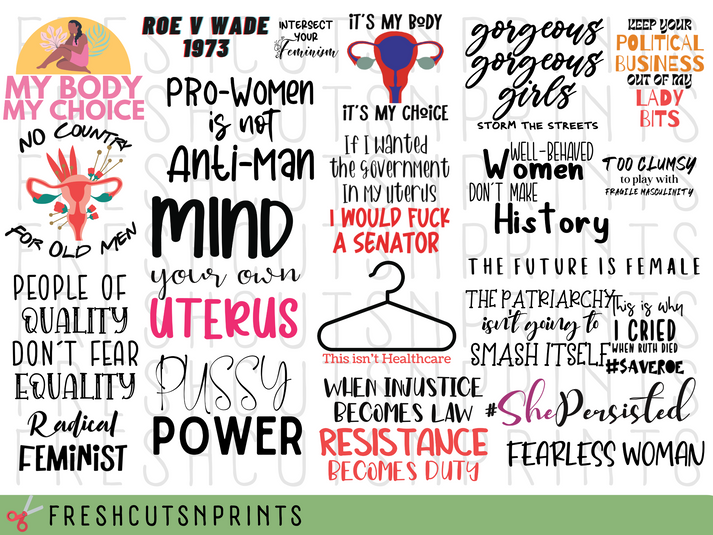 MY BODY
MY CHOICE
NO COUNTRY
FOR OLD MEN
PEOPLE OF
QUALITY
DON'T FEAR
EQUALITY
Radical
FEMINIST
ROE V WADE
1973
INTERSECT
YOUR
Feminism
PRO-WOMEN
is not
Anti-MAN
MIND
your own
UTERUS
PUSSY
POWER
iT'S MY BODY
iT'S MY CHOiCE
If I wanted
the government
In my uterus
I WOULD FUCK
A SENATOR
This isn't Healthcare
WHEN INJUSTICE
BECOMES LAW
RESISTANCE
BECOMES DUTY
gorgeous
gorgeous
girls
STORM THE STREETS
KEEP YOUR
POLITICAL
BUSINESS
OUT OF MY
LADY
BITS
WELL-BEHAVED
Women
DON'T MAKE
History
TOO CLUMSY
to play with
FRAGILE MASCULINITY
THE FUTURE IS FEMALE
THE PATRIARCHY
isn't going to
SMASH ITSELF
This is why
I CRIED
WHEN RUTH DIED
#SAVEROE
#ShePersisted
FEARLESS WOMAN
FRESHCUTSNPRINTS